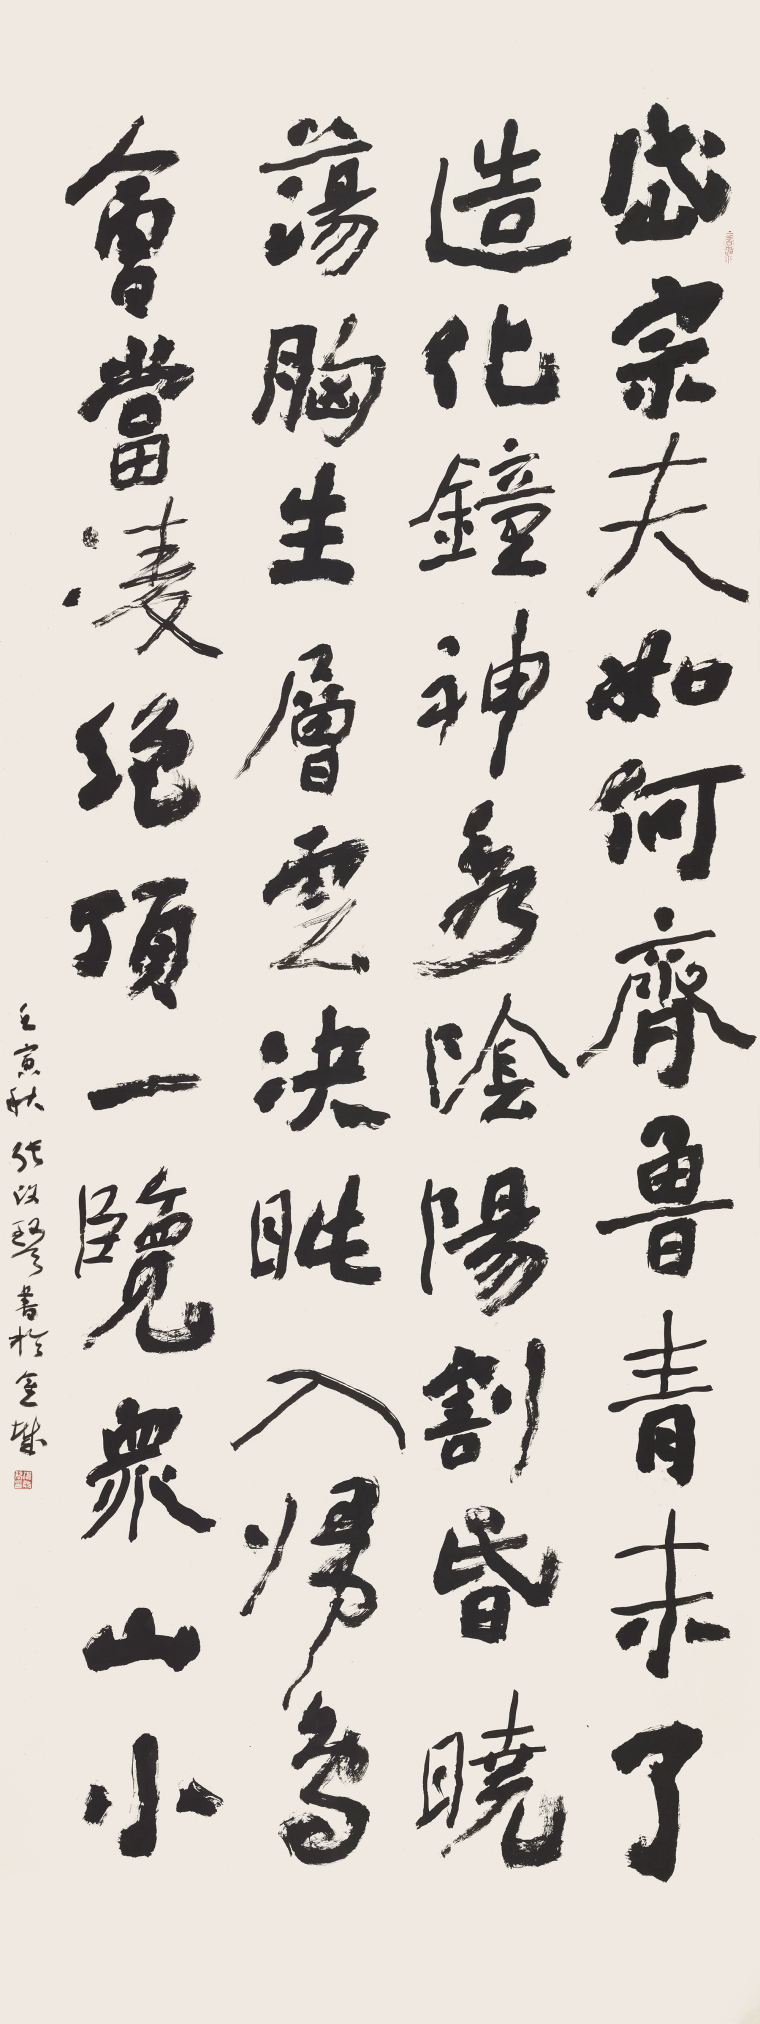 岱宗夫如何齊魯青未了
造化鐘神秀陰陽割昏曉
蕩胸生層雲決眥入歸鳥
會當凌絕頂一覽衆山小
壬寅秋張改琴書於金城